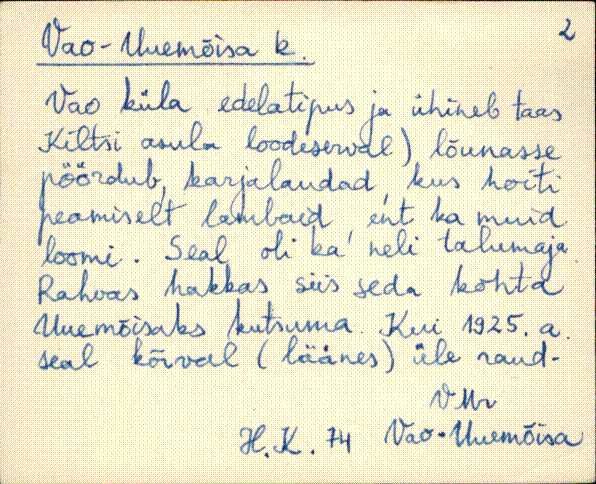 2
Vao-Uuemõisa k.
Vao küla edelatipus ja ühineb taas
Kiltsi asula loodeserval) lõunasse
pöördub, karjalaudad, kus hoiti
peamiselt lambaid, ent ka muid
loomi. Seal oli ka neli talumaja.
Rahvas hakkas siis seda kohta
Uuemõisaks kutsuma. Kui 1925. a.
seal kõrval (läänes) üle raud-
VMr
H.K. 74 Vao-Uuemõisa